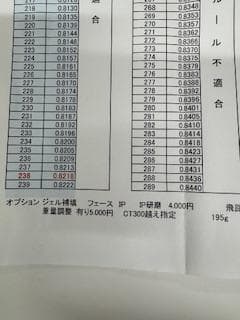 217 0.8126 267 0.8346
218 0.8130 268 0.8348
219 0.8135 269 0.8353
220 0.8139 270 0.8357
221 0.8144 271 0.8361
222 0.8148 272 0.8366
223 0.8152 273 0.8370
224 0.8157 274 0.8375
225 0.8161 275 0.8379
226 0.8165 276 0.8383
227 0.8170 277 0.8388
228 0.8174 278 0.8392
229 0.8179 279 0.8396
230 0.8183 280 0.8401
231 0.8187 281 0.8405
232 0.8192 282 0.8410
233 0.8196 283 0.8414
234 0.8200 284 0.8418
235 0.8205 285 0.8423
236 0.8209 286 0.8427
237 0.8213 287 0.8431
238 0.8218 288 0.8436
239 0.8222 289 0.8440
適合
ルール不適合
オプション ジェル補填 フェース IP IP研磨 4,000円 飛
重量調整 有り5,000円 CT300越え指定 195g